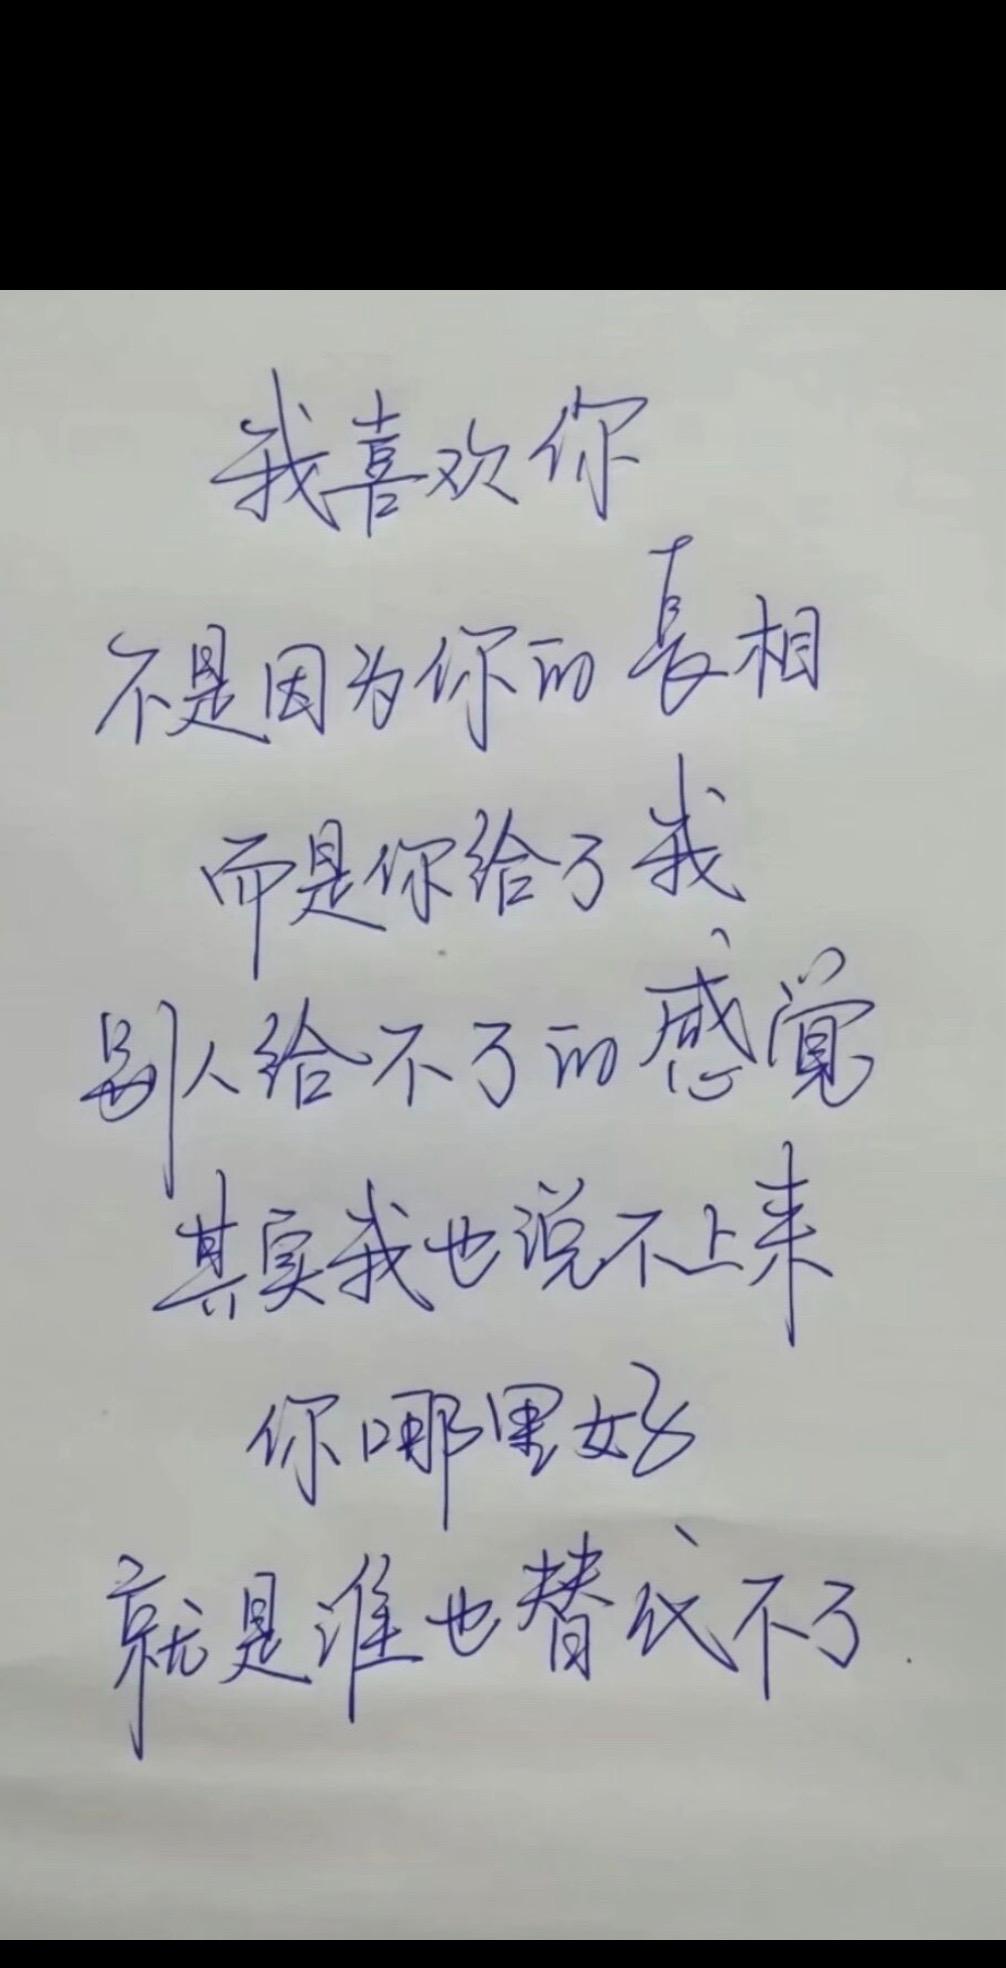 我喜欢你
不是因为你的長相
而是你给了我
别人给不了的感觉
其实我也说不上来
你哪里好
就是谁也替代不了.